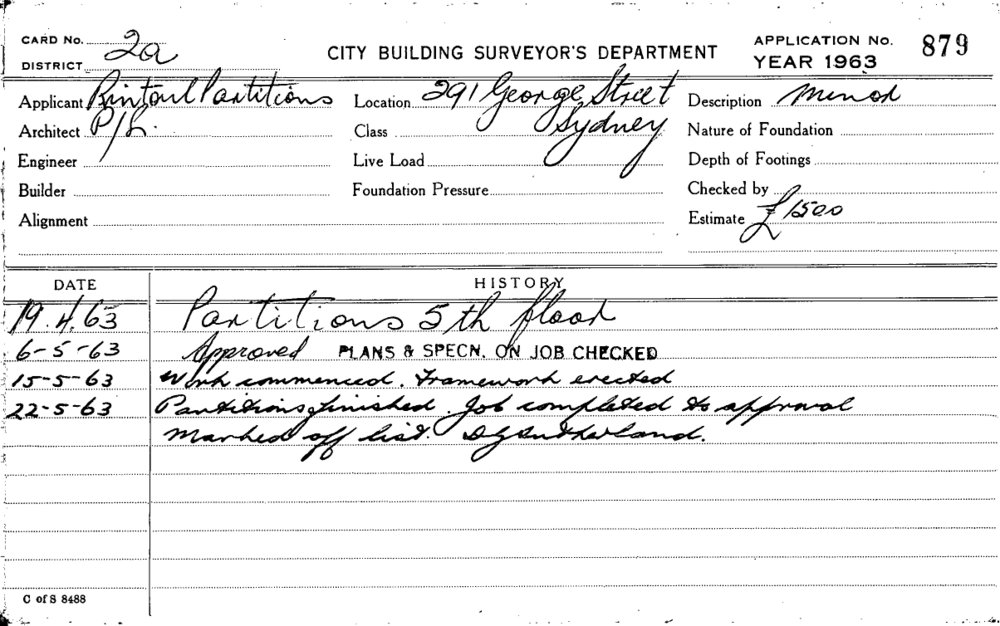 CARD No. 2a
CITY BUILDING SURVEYOR'S DEPARTMENT
APPLICATION No. 879
DISTRICT
YEAR 1963
Applicant Rintoul Partitions
Location 291 George Street
Description Minor
Architect P/L.
Class Sydney
Nature of Foundation
Engineer
Live Load
Depth of Footings
Builder
Foundation Pressure
Checked by
Alignment
Estimate £1500
DATE HISTORY
19.4.63 Partitions 5th floor
6-5-63 Approved PLANS & SPECN. ON JOB CHECKED
15-5-63 Work commenced. Framework erected
22-5-63 Partitions finished. Job completed to approval
Marked off list. DGSutherland.
C of S 8488